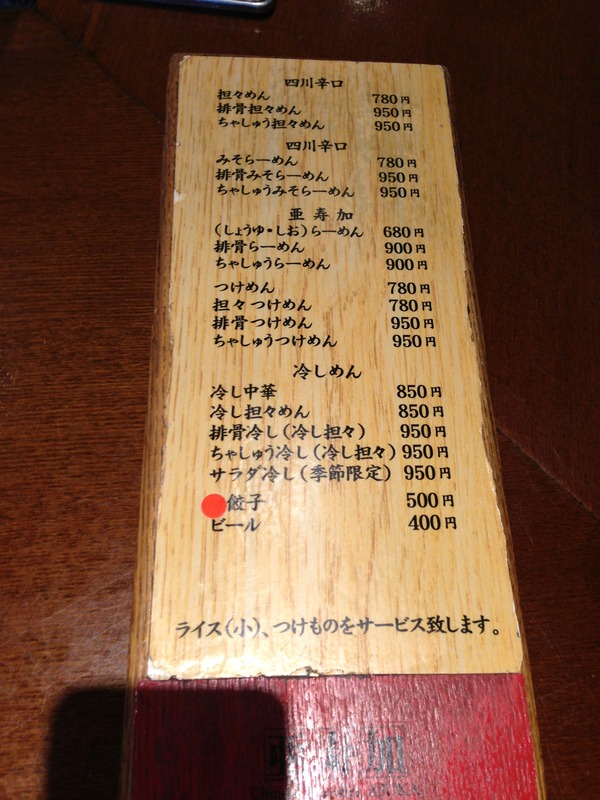 四川辛口
担々めん 780円
排骨担々めん 950円
ちゃしゅう担々めん 950円
四川辛口
みそらーめん 780円
排骨みそらーめん 950円
ちゃしゅうみそらーめん 950円
亜寿加
(しょうゆ・しお)らーめん 680円
排骨らーめん 900円
ちゃしゅうらーめん 900円
つけめん 780円
担々つけめん 780円
排骨つけめん 950円
ちゃしゅうつけめん 950円
冷しめん
冷し中華 850円
冷し担々めん 850円
排骨冷し(冷し担々) 950円
ちゃしゅう冷し(冷し担々) 950円
サラダ冷し(季節限定) 950円
餃子 500円
ビール 400円
ライス(小)、つけものをサービス致します。
亜寿加